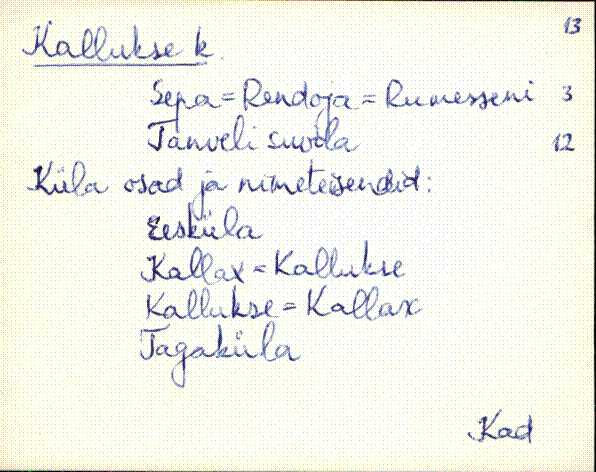 13
Kallukse k.
Sepa = Rendoja = Rumesseni 3
Tanveli suvila 12
Küla osad ja nimeteisendid:
Eesküla
Kallax = Kallukse
Kallukse = Kallax
Tagaküla
Kad